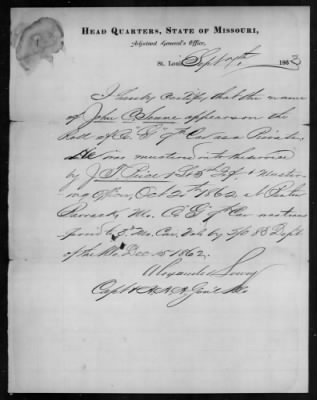 Head Quarters, State of Missouri,
Adjutant General's Office,
St. Louis, Sept 17th, 1863
I hereby certify that the name
of John C. appears on the
Roll of Co. "G" 7th Cav as a Private.
He was mustered into the service
by J. T. Price 1st Lt 5th Inft & Muster-
ing Officer, Oct 20th 1862, at
Barracks, Mo. Co "G" 7th Cav was trans-
ferred to Mo. Cav. Vols by S/O Dept
of the Mo. Dec 15 1862.
Alexander Lowry
Capt & A. A. A. Gen'l Mo